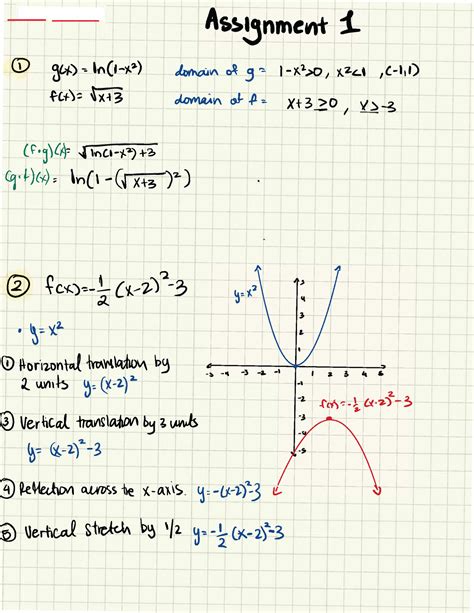 Assignment 1
① g(x) = ln(1-x²) domain of g = 1-x²>0, x²<1, (-1,1)
f(x) = √x+3 domain of f = x+3 ≥0, x≥-3
(f∘g)(x) = √ln(1-x²)+3
(g∘f)(x) = ln(1-(√x+3)²)
② f(x) = -1/2 (x-2)² -3
• y = x²
① Horizontal translation by
2 units y= (x-2)²
③ Vertical translation by 3 units
y= (x-2)² -3
④ Reflection across the x-axis. y=-(x-2)²-3
⑤ Vertical stretch by 1/2 y=-1/2 (x-2)²-3
y=x²
5
4
3
2
1
-5 -4 -3 -2 -1 1 2 3 4 5
-1
-2
f(x)=-1/2 (x-2)²-3
-3
-4
-5